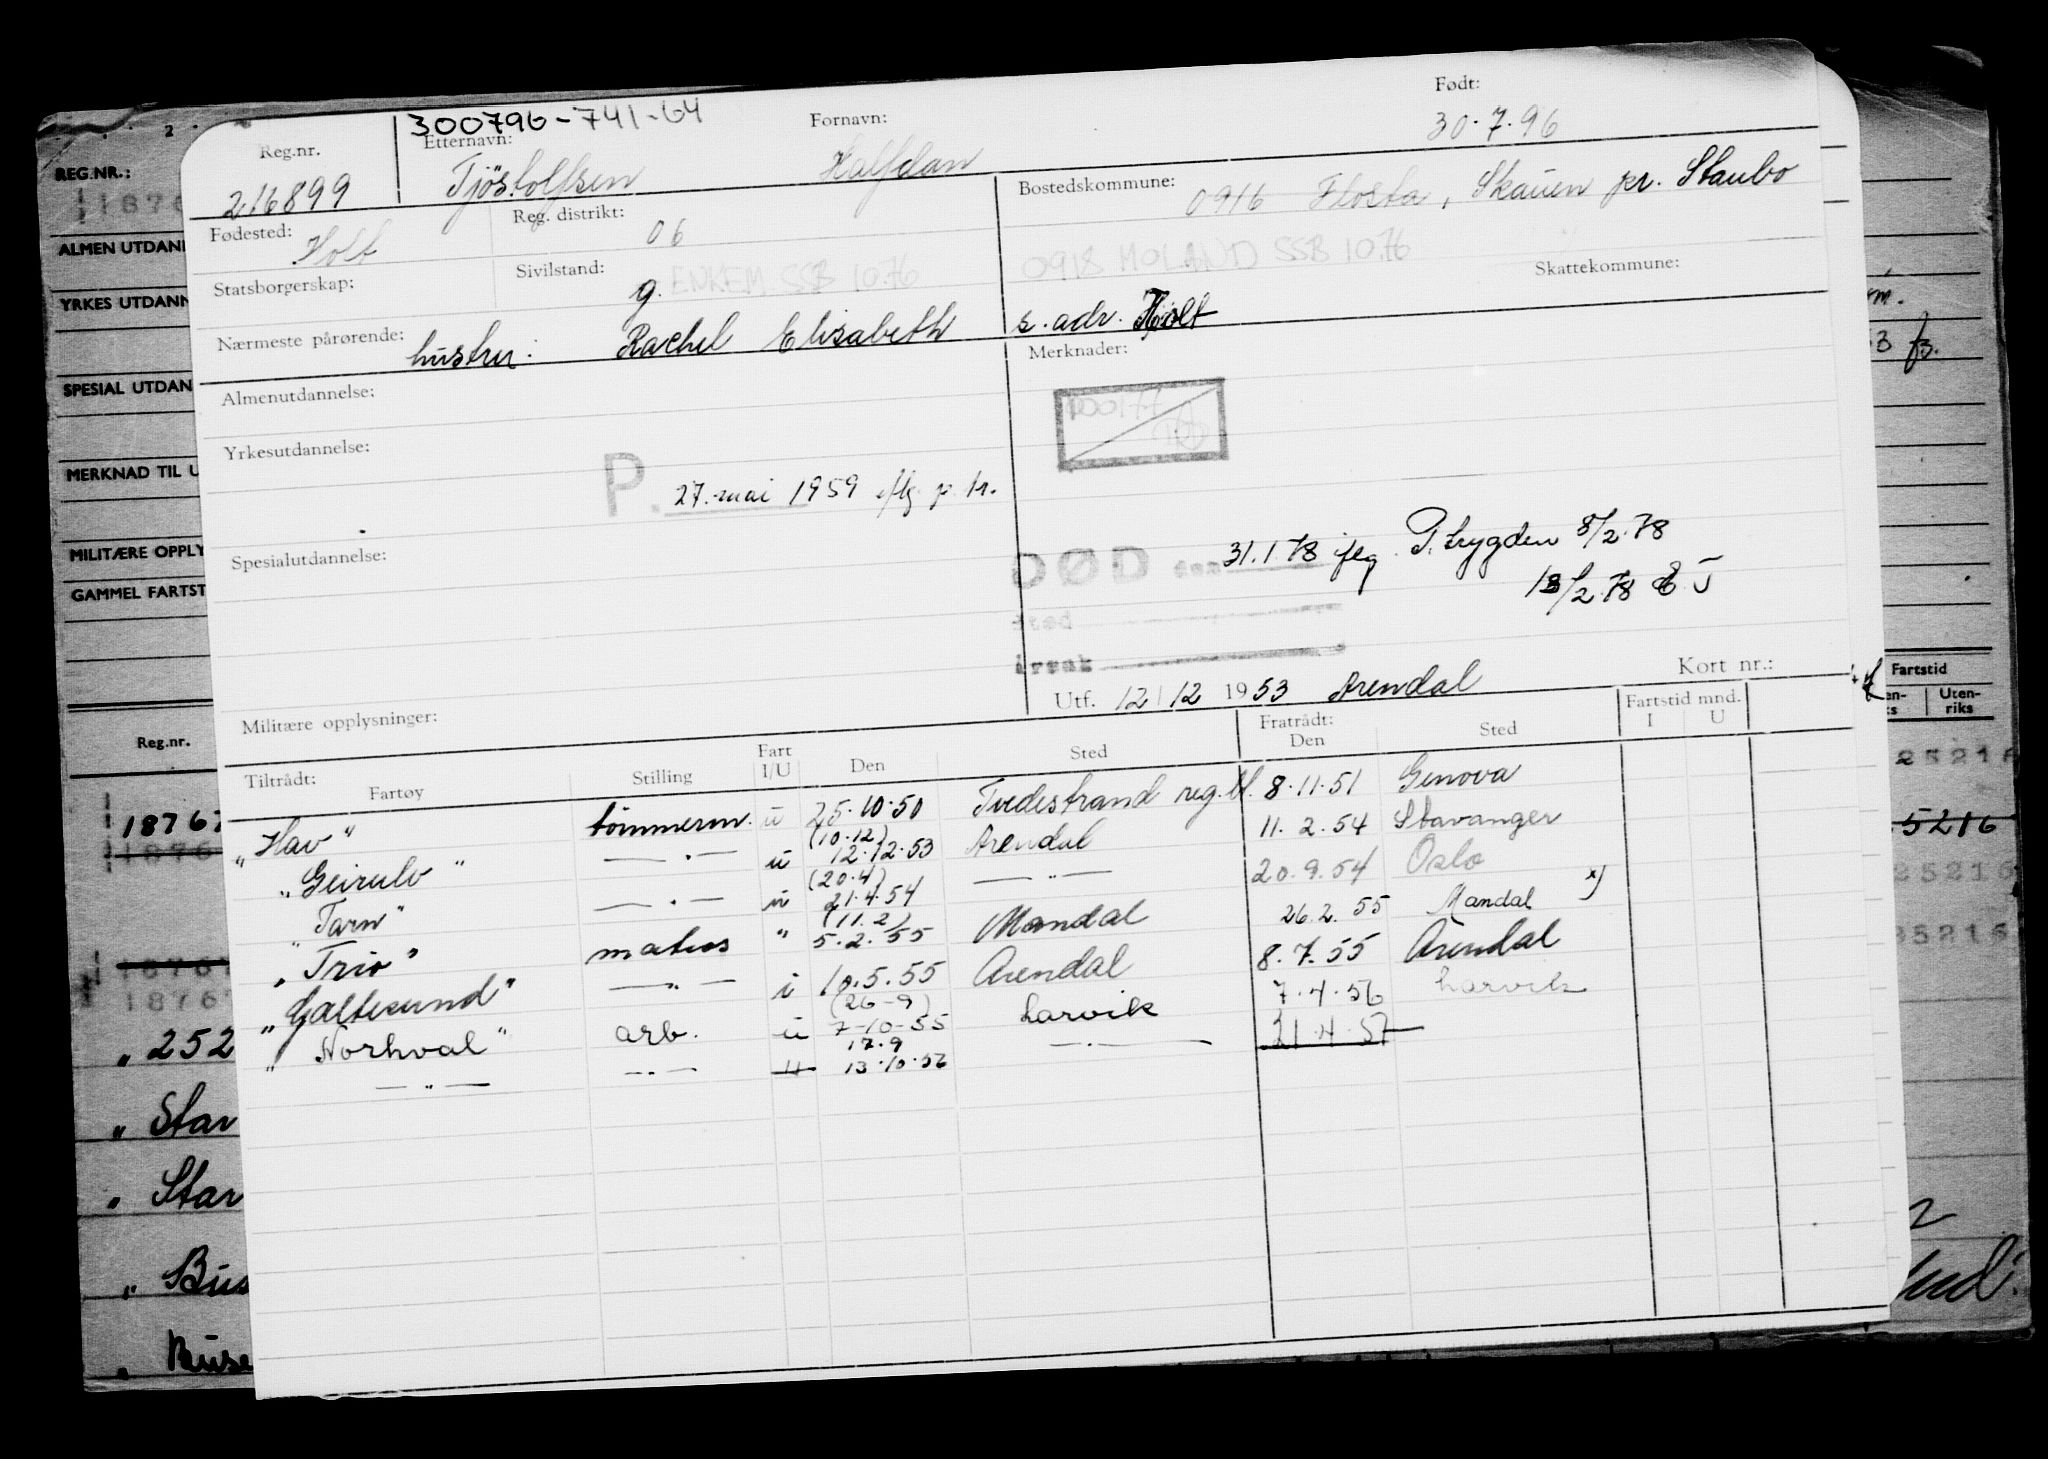 300796-741-64
Reg.nr. Etternavn: Fornavn: Født:
216899 Tjöstolfsen Halfdan 30.7.96
Fødested: Reg. distrikt: Bostedskommune:
Holt 06 0916 Flosta, Skauen pr. Staubo
0918 MOLAND SSB 10.76
Statsborgerskap: Sivilstand: Skattekommune:
g. ENKEM. SSB 10.76
Nærmeste pårørende: hustru: Rachel Elisabeth s. adr. Holt
Almenutdannelse: Merknader:
Yrkesutdannelse:
P. 27. mai 1959 iflg. p. tr.
Spesialutdannelse:
DØD den 31.1.78 iflg. P. trygden 8/2.78
sted 13/2.78
årsak
Utf. 12/12 1953 Arendal Kort nr.:
Militære opplysninger:
Tiltrådt: Fartøy Stilling Fart I/U Den Sted Fratrådt: Den Sted Fartstid mnd. I U
"Hav" tømmerm. u 25.10.50 Tvedestrand reg.bl. 8.11.51 Genova
"Geirulv" — " — u (10.12) 12.12.53 Arendal 11.2.54 Stavanger
"Tarn" — " — u (20.4) 21.4.54 — " — 20.9.54 Oslo
"Trio" matros " (11.2) 5.2.55 Mandal 26.2.55 Mandal x)
"Galtesund" — " — i 10.5.55 Arendal 8.7.55 Arendal
"Norhval" arb. u (26-9) 7-10-55 Larvik 7.4.56 Larvik
— " — — " — u 17.9 13.10.56 — " — 21.4.57
REG.NR.:
ALMEN UTDAN
YRKES UTDANN
SPESIAL UTDAN
MERKNAD TIL U
MILITÆRE OPPLY
GAMMEL FARTST
Reg.nr.
18767
"252
"Star
"Star
"Bus
"Buse
Fartstid
Uten-
riks
25216
5216
25216
25216